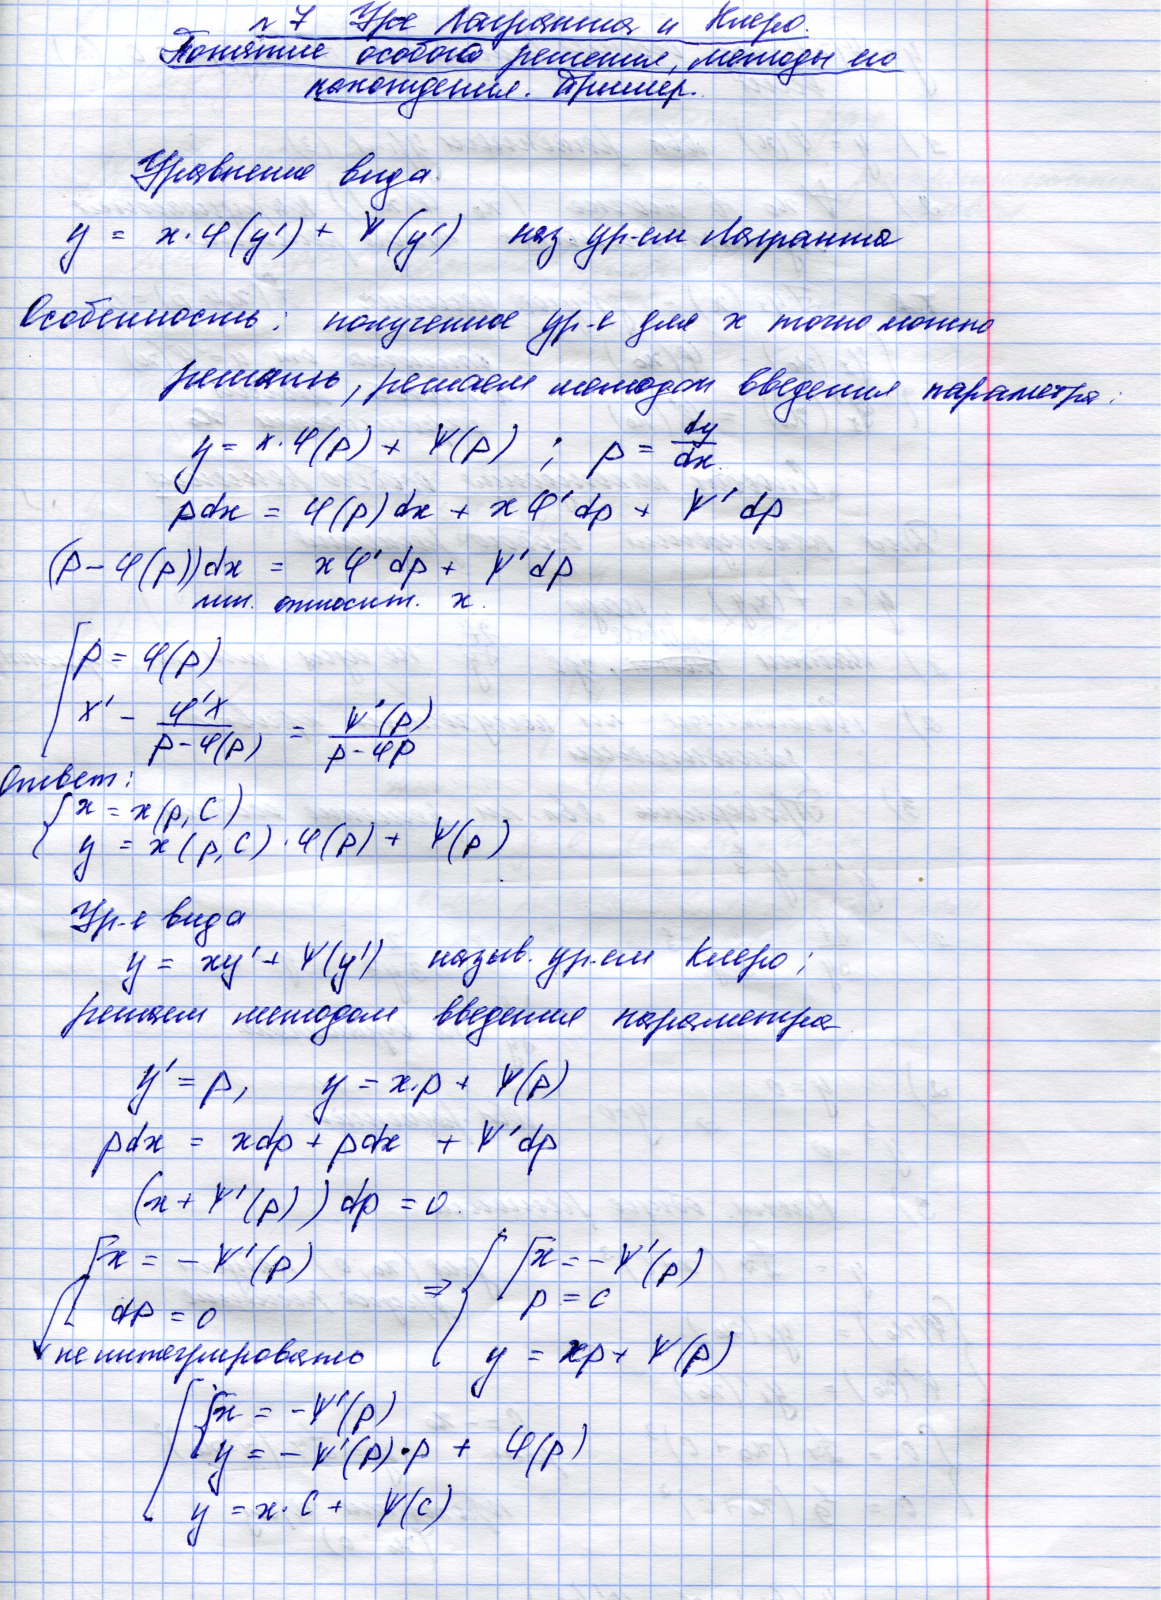 п 7 Ур-е Лагранжа и Клеро.
Понятие особого решения, методы его
нахождения. Пример.
Уравнение вида
y = x·φ(y') + ψ(y') наз. ур-ем Лагранжа
Особенность: полученное ур-е для x точно можно
решить, решаем методом введения параметра:
y = x·φ(p) + ψ(p) ; p = dy/dx
pdx = φ(p)dx + xφ'dp + ψ'dp
(p - φ(p))dx = xφ'dp + ψ'dp
лин. относит. x.
[ p = φ(p)
x' - φ'x/(p-φ(p)) = ψ'(p)/(p-φp)
Ответ:
{ x = x(p, C)
y = x(p, C)·φ(p) + ψ(p)
Ур-е вида
y = xy' + ψ(y') назыв. ур-ем Клеро;
решаем методом введения параметра
y' = p, y = x·p + ψ(p)
pdx = xdp + pdx + ψ'dp
(x + ψ'(p))dp = 0.
[ x = -ψ'(p) ⇒ { [ x = -ψ'(p)
dp = 0 p = c
не интегрировать y = xp + ψ(p)
[ { x = -ψ'(p)
y = -ψ'(p)·p + φ(p)
y = x·C + ψ(c)